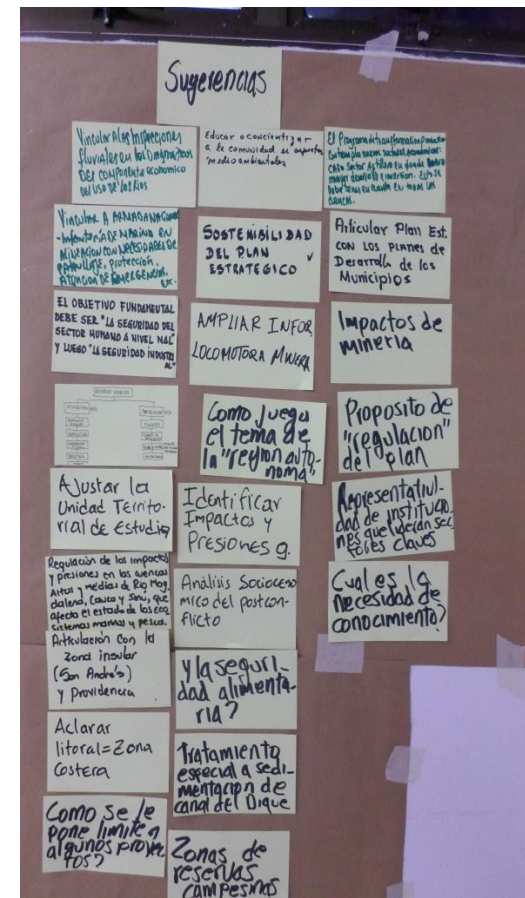 Sugerencias
Vincular A las Inspecciones
fluviales en los Diagnosticos
DEL componente economico
del uso de los Rios
Vincular A ARMADA NACIONAL
- Infantería de MARINA en
Mineracion con Necesidades de
PATRULLAJE, protección,
Atención de Emergencias,
EL OBJETIVO FUNDAMENTAL
DEBE SER "LA SEGURIDAD DEL
SECTOR HUMANO A NIVEL NAL"
Y LUEGO "LA SEGURIDAD INDUSTRI
AL"
Ajustar la
Unidad Territo-
rial de Estudio
Regulación de los impactos
y presiones en las cuencas
Altas y medias de Rio Mag
dalena, Cauca y Sinu, que
afecta el estado de los eco
sistemas marinos y pesca.
Articulación con la
Zona insular
(San Andrés)
y Providencia
Aclarar
litoral = Zona
Costera
Como se le
pone limite a
algunos proyec
tos?
Educar o concientizar
a la comunidad en aspectos
medio ambientales
SOSTENIBILIDAD
DEL PLAN
ESTRATEGICO
AMPLIAR INFOR
LOCOMOTORA MINERA
Como juega
el tema de
la "region auto-
noma"
Identificar
Impactos y
Presiones g.
Análisis Socioeco
mico del postcon-
flicto
y la seguri-
dad alimenta-
ria?
Tratamiento
especial a sedi-
mentacion de
canal del Dique
Zonas de
reservas
campesinas
El Programa de transformacion productiva
contempla nuevos sectores economicos
mayor desarrollo e inversion. Esto se
debe tener en cuenta en todas las
cuencas.
Articular Plan Est.
CON LOS PLANES de
Desarrollo de los
Municipios
Impactos de
mineria
Proposito de
"regulacion"
del plan
Representativi-
dad de institucio-
nes que lideran sec-
tores claves
Cual es la
necesidad de
conocimiento?